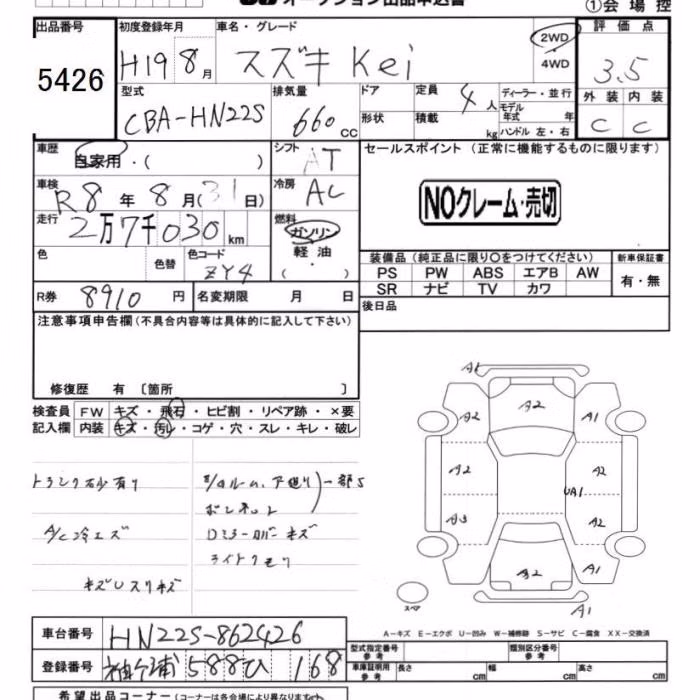 オークション出品申込書 ①会場控
出品番号 初度登録年月 車名・グレード 2WD 評価点
5426 H19 8月 スズキ Kei 4WD 3.5
型式 排気量 ドア 定員 4人 ディーラー・並行 外装 内装
CBA-HN22S 660cc 形状 積載 kg モデル年式 年 C C
ハンドル 左・右
車歴 自家用・( ) シフト AT セールスポイント (正常に機能するものに限ります)
車検 R8年 8月(31日) 冷房 AC
NOクレーム・売切
走行 2万7千030km 燃料 ガソリン
軽油
・( )
色 色替 色コード ZY4 装備品(純正品に限り○をつけてください) 新車保証書
PS PW ABS エアB AW 有・無
SR ナビ TV カワ
R券 8910円 名変期限 月 日 後日品
注意事項申告欄(不具合内容等は具体的に記入して下さい)
修復歴 有 [箇所 ]
検査員 FW キズ・飛石・ヒビ割・リペア跡・×要
記入欄 内装 キズ・汚れ・コゲ・穴・スレ・キレ・破レ
A1
A2 A2 A1
A2 A2
UA1
A3 A2
A2 A1
A1
スペア
トランク砂有り
一部S
ボンネット
A/C冷エズ Dミラーカバーキズ
ライトクモリ
キズUスリキズ
A-キズ E-エクボ U-凹み W-補修跡 S-サビ C-腐食 XX-交換済
車台番号 HN22S-862426
型式指定番号 参考 類別区分番号 参考
登録番号 袖ケ浦 588ひ 168
車庫証明用 参考 長さ cm 幅 cm 高さ cm
希望出品コーナー(コーナーは各会場により異なります)